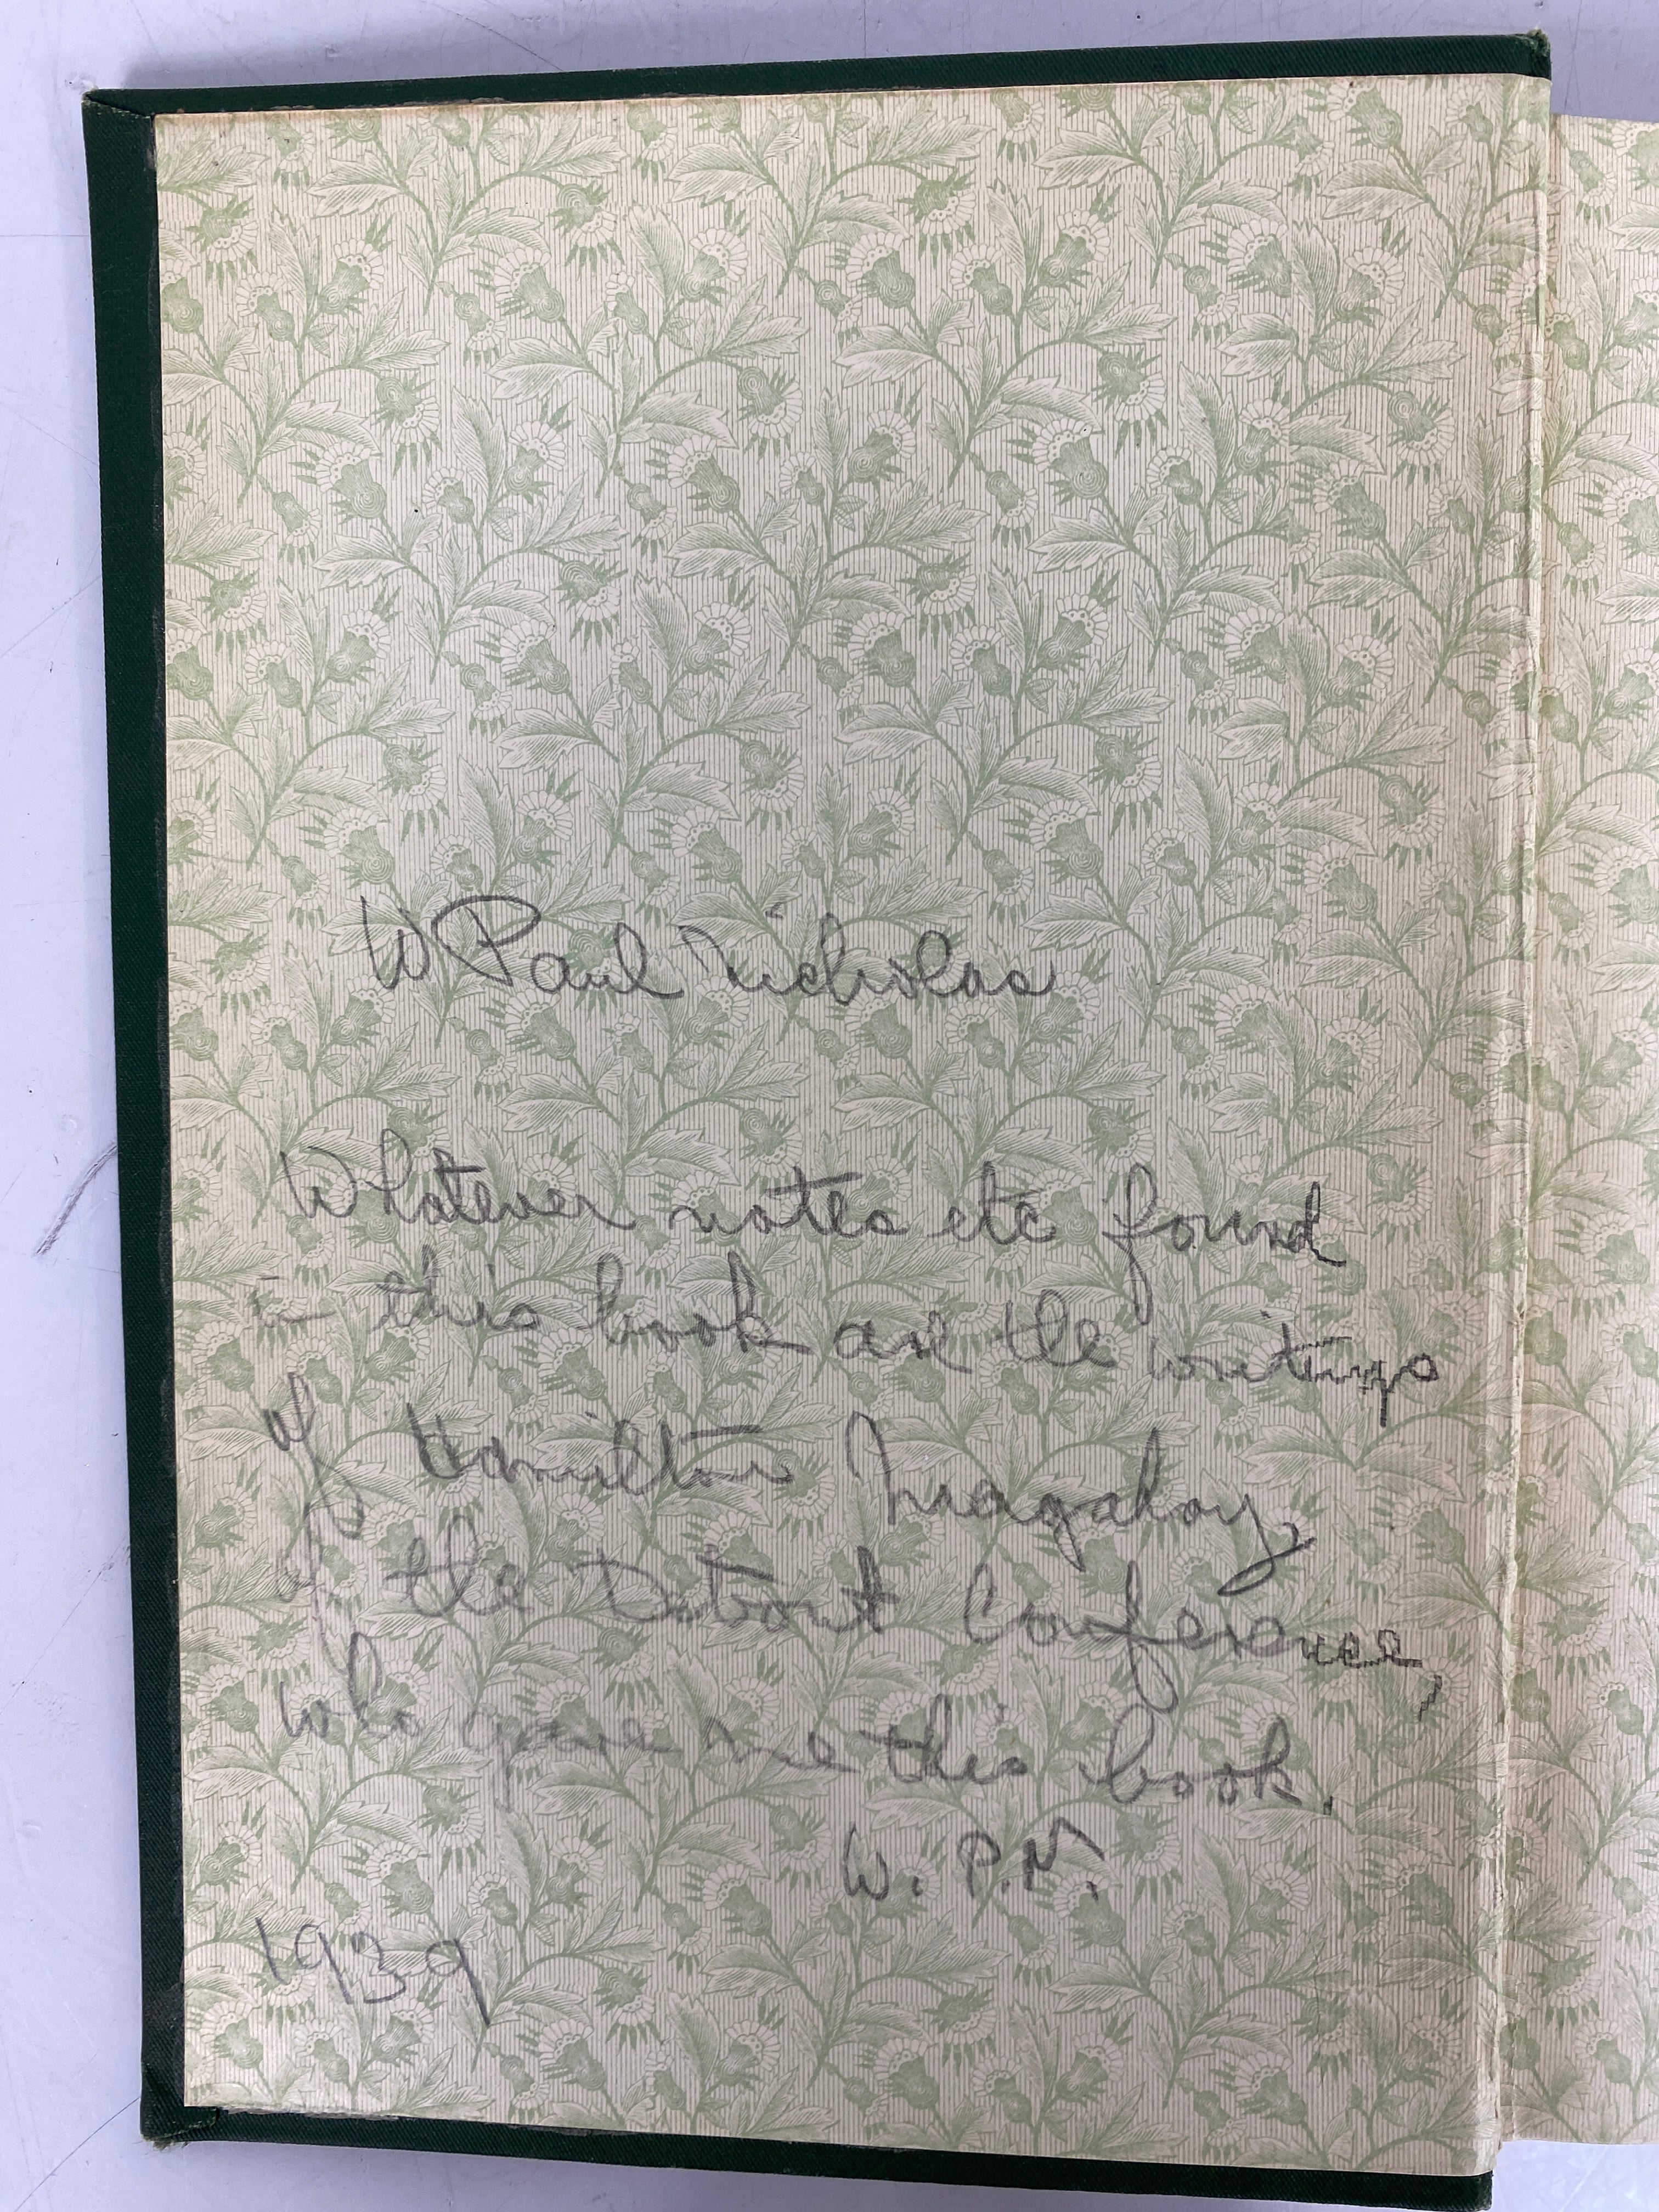 W Paul Nicholas
Whatever notes etc found
in this book are the writings
of Hamilton Magahay,
of the Detroit Conference,
who gave me this book.
W. P. N.
1939